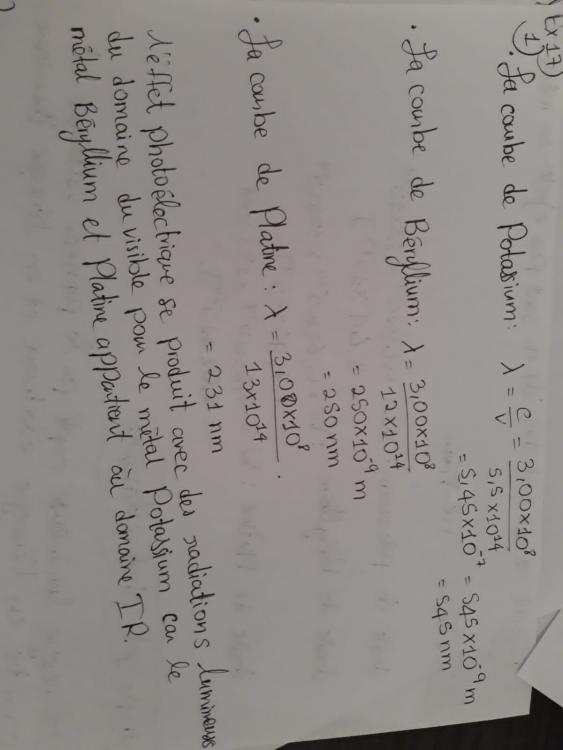 Ex 17
1)
• La courbe de Potassium: λ = c/ν = 3,00x10⁸/5,5x10¹⁴
= 5,45x10⁻⁷ = 545x10⁻⁹ m
= 545 nm
• La courbe de Béryllium: λ = 3,00x10⁸/12x10¹⁴
= 250x10⁻⁹ m
= 250 nm
• La courbe de Platine: λ = 3,00x10⁸/13x10¹⁴.
= 231 nm
l'éffet photoélectrique se produit avec des radiations lumineuses
du domaine du visible pour le métal Potassium car le
métal Béryllium et Platine appartient au domaine IR.